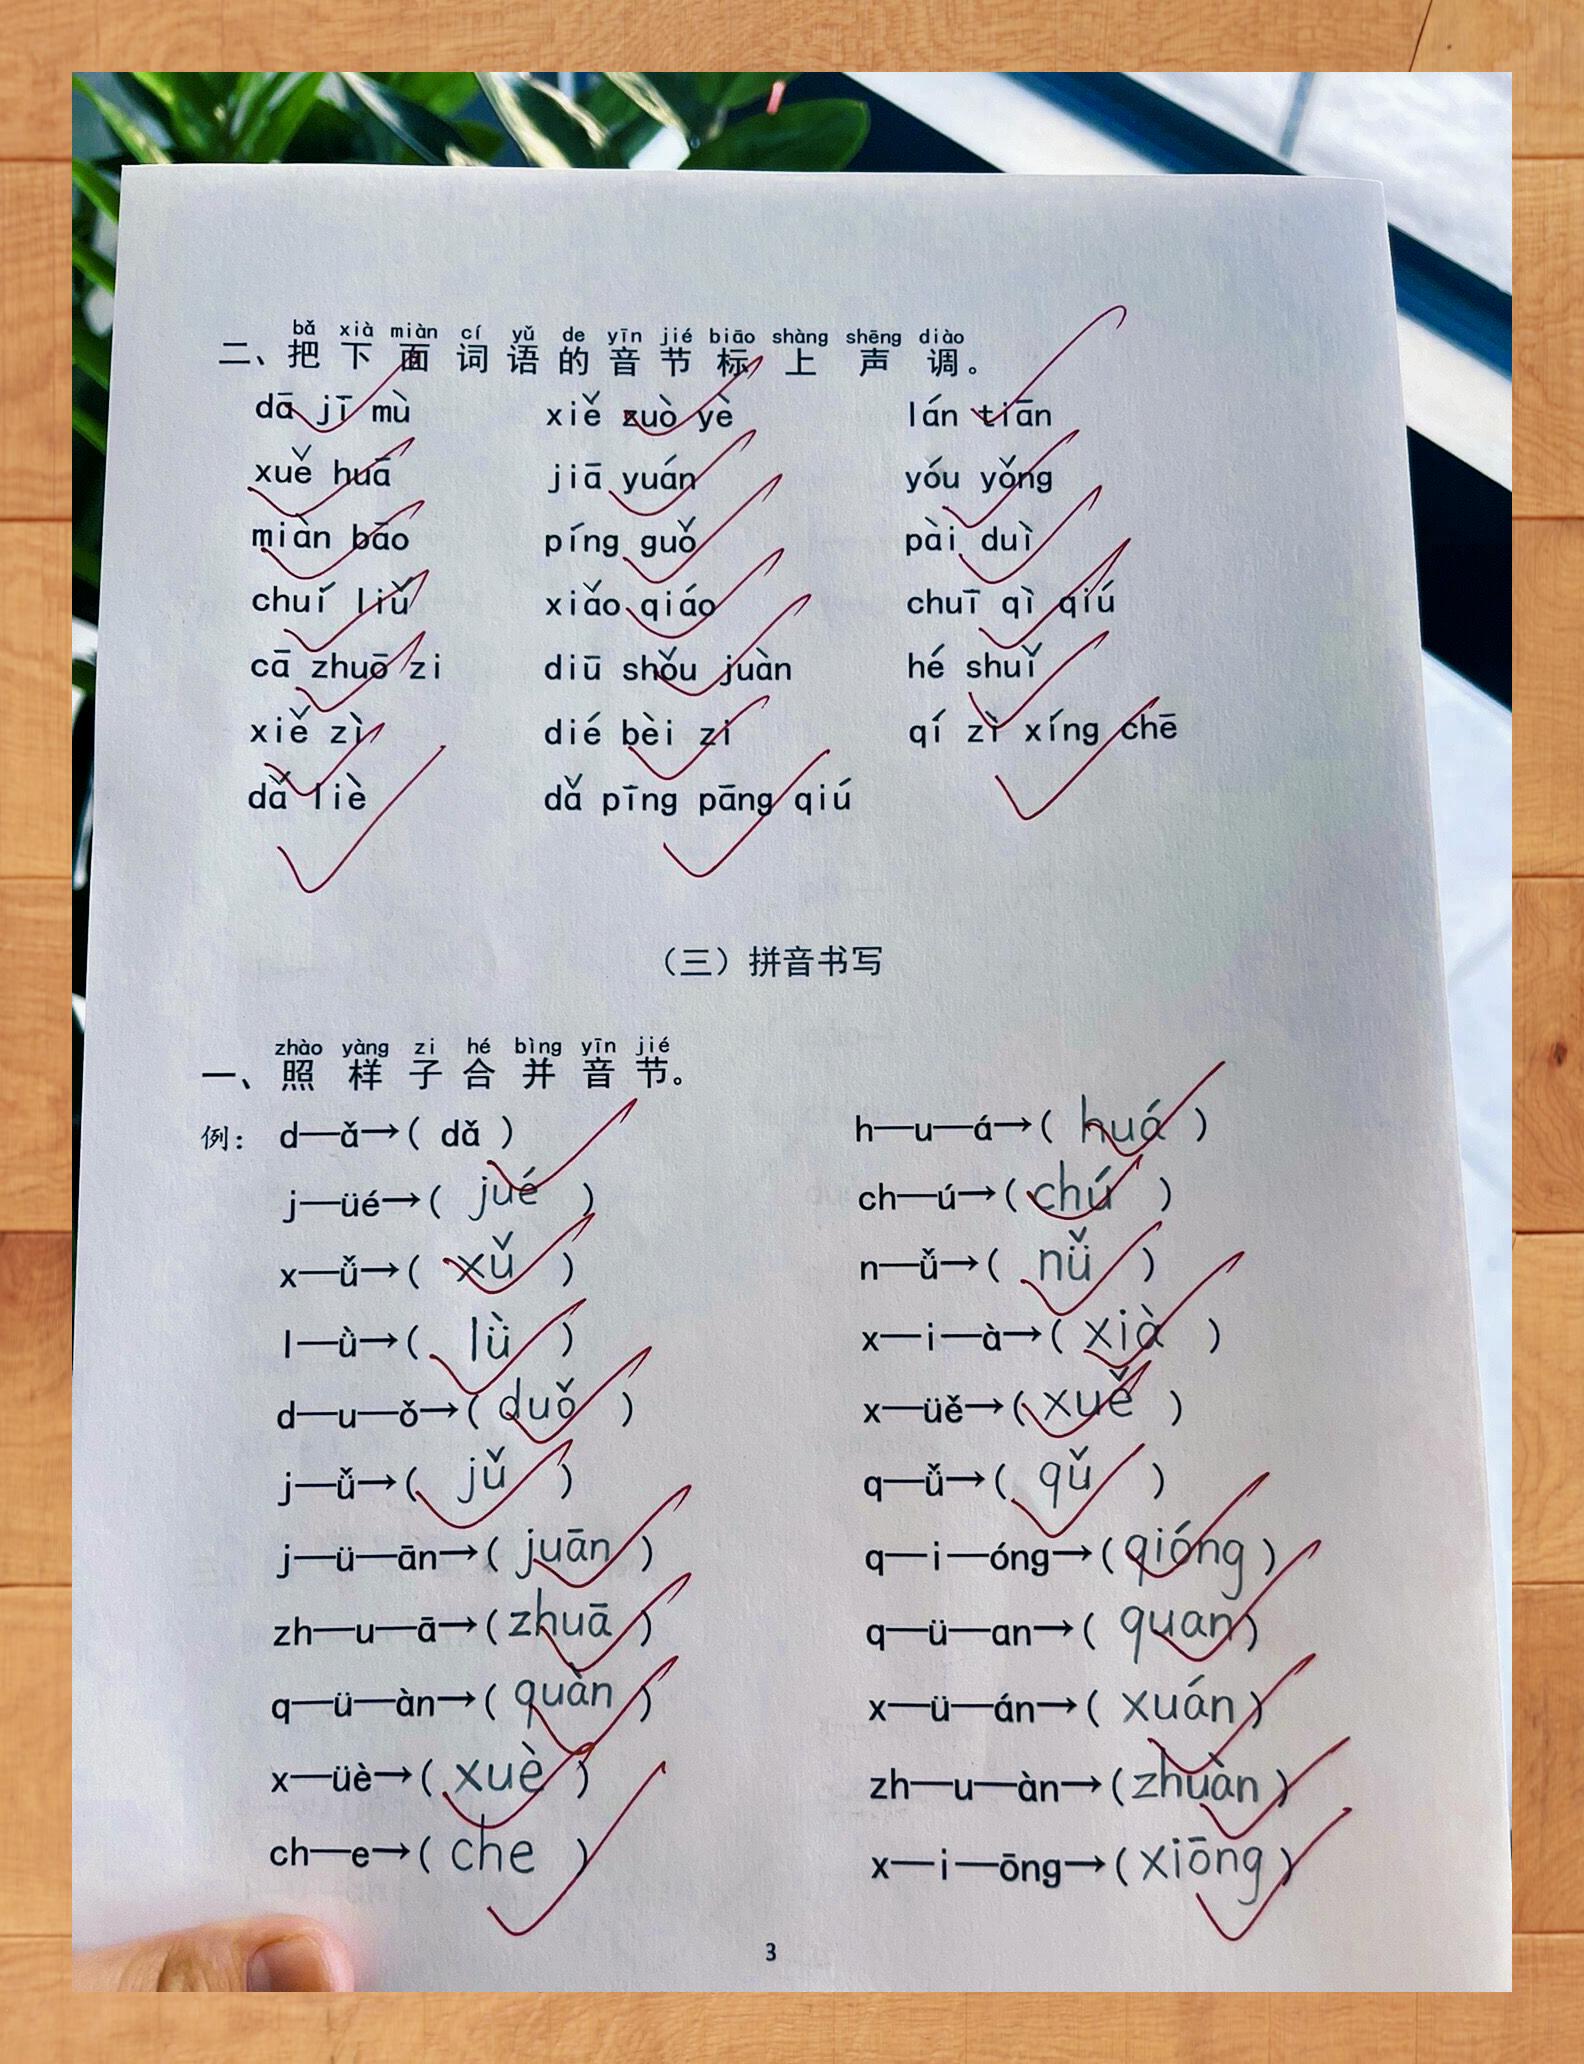 bǎ xià miàn cí yǔ de yīn jié biāo shàng shēng diào
二、把下面词语的音节标上声调。
dā jī mù xiě zuò yè lán tiān
xuě huā jiā yuán yóu yǒng
miàn bāo píng guǒ pài duì
chuí liǔ xiǎo qiáo chuī qì qiú
cā zhuō zi diū shǒu juàn hé shuǐ
xiě zì dié bèi zi qí zì xíng chē
dǎ liè dǎ pīng pāng qiú
（三）拼音书写
zhào yàng zi hé bìng yīn jié
一、照样子合并音节。
例： d—ǎ→( dǎ ) h—u—á→( huá )
j—üé→( jué ) ch—ú→( chú )
x—ǚ→( xǔ ) n—ǚ→( nǚ )
l—ǜ→( lǜ ) x—i—à→( xià )
d—u—ǒ→( duǒ ) x—üě→( xuě )
j—ǚ→( jǔ ) q—ǚ→( qǔ )
j—ü—ān→( juān ) q—i—óng→( qióng )
zh—u—ā→( zhuā ) q—ü—an→( quan )
q—ü—àn→( quàn ) x—ü—án→( xuán )
x—üè→( xuè ) zh—u—àn→( zhuàn )
ch—e→( che ) x—i—ōng→( xiōng )
3